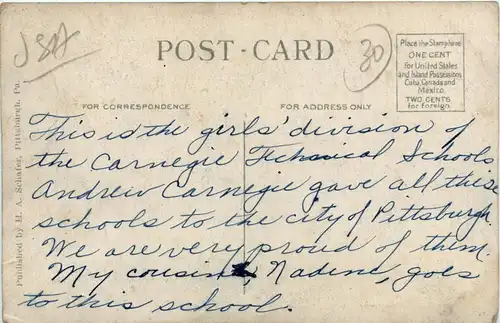 JSA
POST-CARD
30
Place the Stamp here
ONE CENT
for United States
and Island Possessions
Cuba, Canada and
Mexico.
TWO CENTS
for Foreign.
FOR CORRESPONDENCE
FOR ADDRESS ONLY
This is the girls' division of
the Carnegie Technical Schools
Andrew Carnegie gave all these
schools to the city of Pittsburgh.
We are very proud of them.
My cousin, Nadine, goes
to this school.
Published by H. A. Schafer, Pittsburgh, Pa.